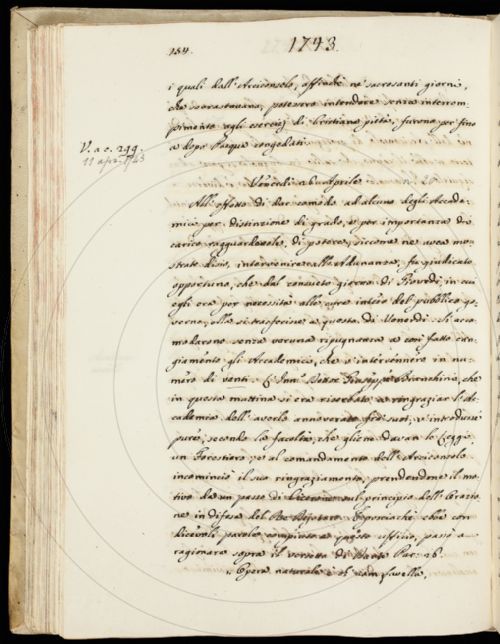 154.
1743.
i quali dall'Arciconsolo, affinchè ne' sacrosanti giorni,
che sovrastavano, potessero intendere senza interrom-
pimento agli esercizj di Cristiana pietà, furono per fino
a dopo Pasqua congedati.
V. a c. 299.
11 apr. 1743
Venerdì 26 Aprile
All'effetto di dar comodo ad alcuno degli Accade-
mici per distinzione di grado, e per importanza di
carico ragguardevole, di potere, siccome ne avea mo-
strato disio, intervenire all'Adunanza, fu giudicato
opportuno, che dal consueto giorno di Giovedì, in cui
egli era per necessità alle cure intero del pubblico go-
verno, ella si trasferisse a questo di Venerdì. Si acco-
modarono senza veruna ripugnanza a così fatto can-
giamento gli Accademici, che v'intervennero in nu-
mero di venti. E Dottor Giuseppe Bianchini, che
in questa mattina si era riserbato a ringraziar l'Ac-
cademia dell'averlo annoverato fra' suoi, e introdurre
pure, secondo la facoltà, che gliene davan le Leggi,
un Forestiero, al comandamento dell'Arciconsolo
incominciò il suo ringraziamento, prendendone il mo-
tivo da un passo di Cicerone sul principio dell'Orazio-
ne in difesa del Re Dejotaro. E posciachè ebbe con
dicevoli parole compiuto a questo ufficio, passò a
ragionare sopra il versetto di Dante Par. 26.
Opera naturale è ch'uom favella.